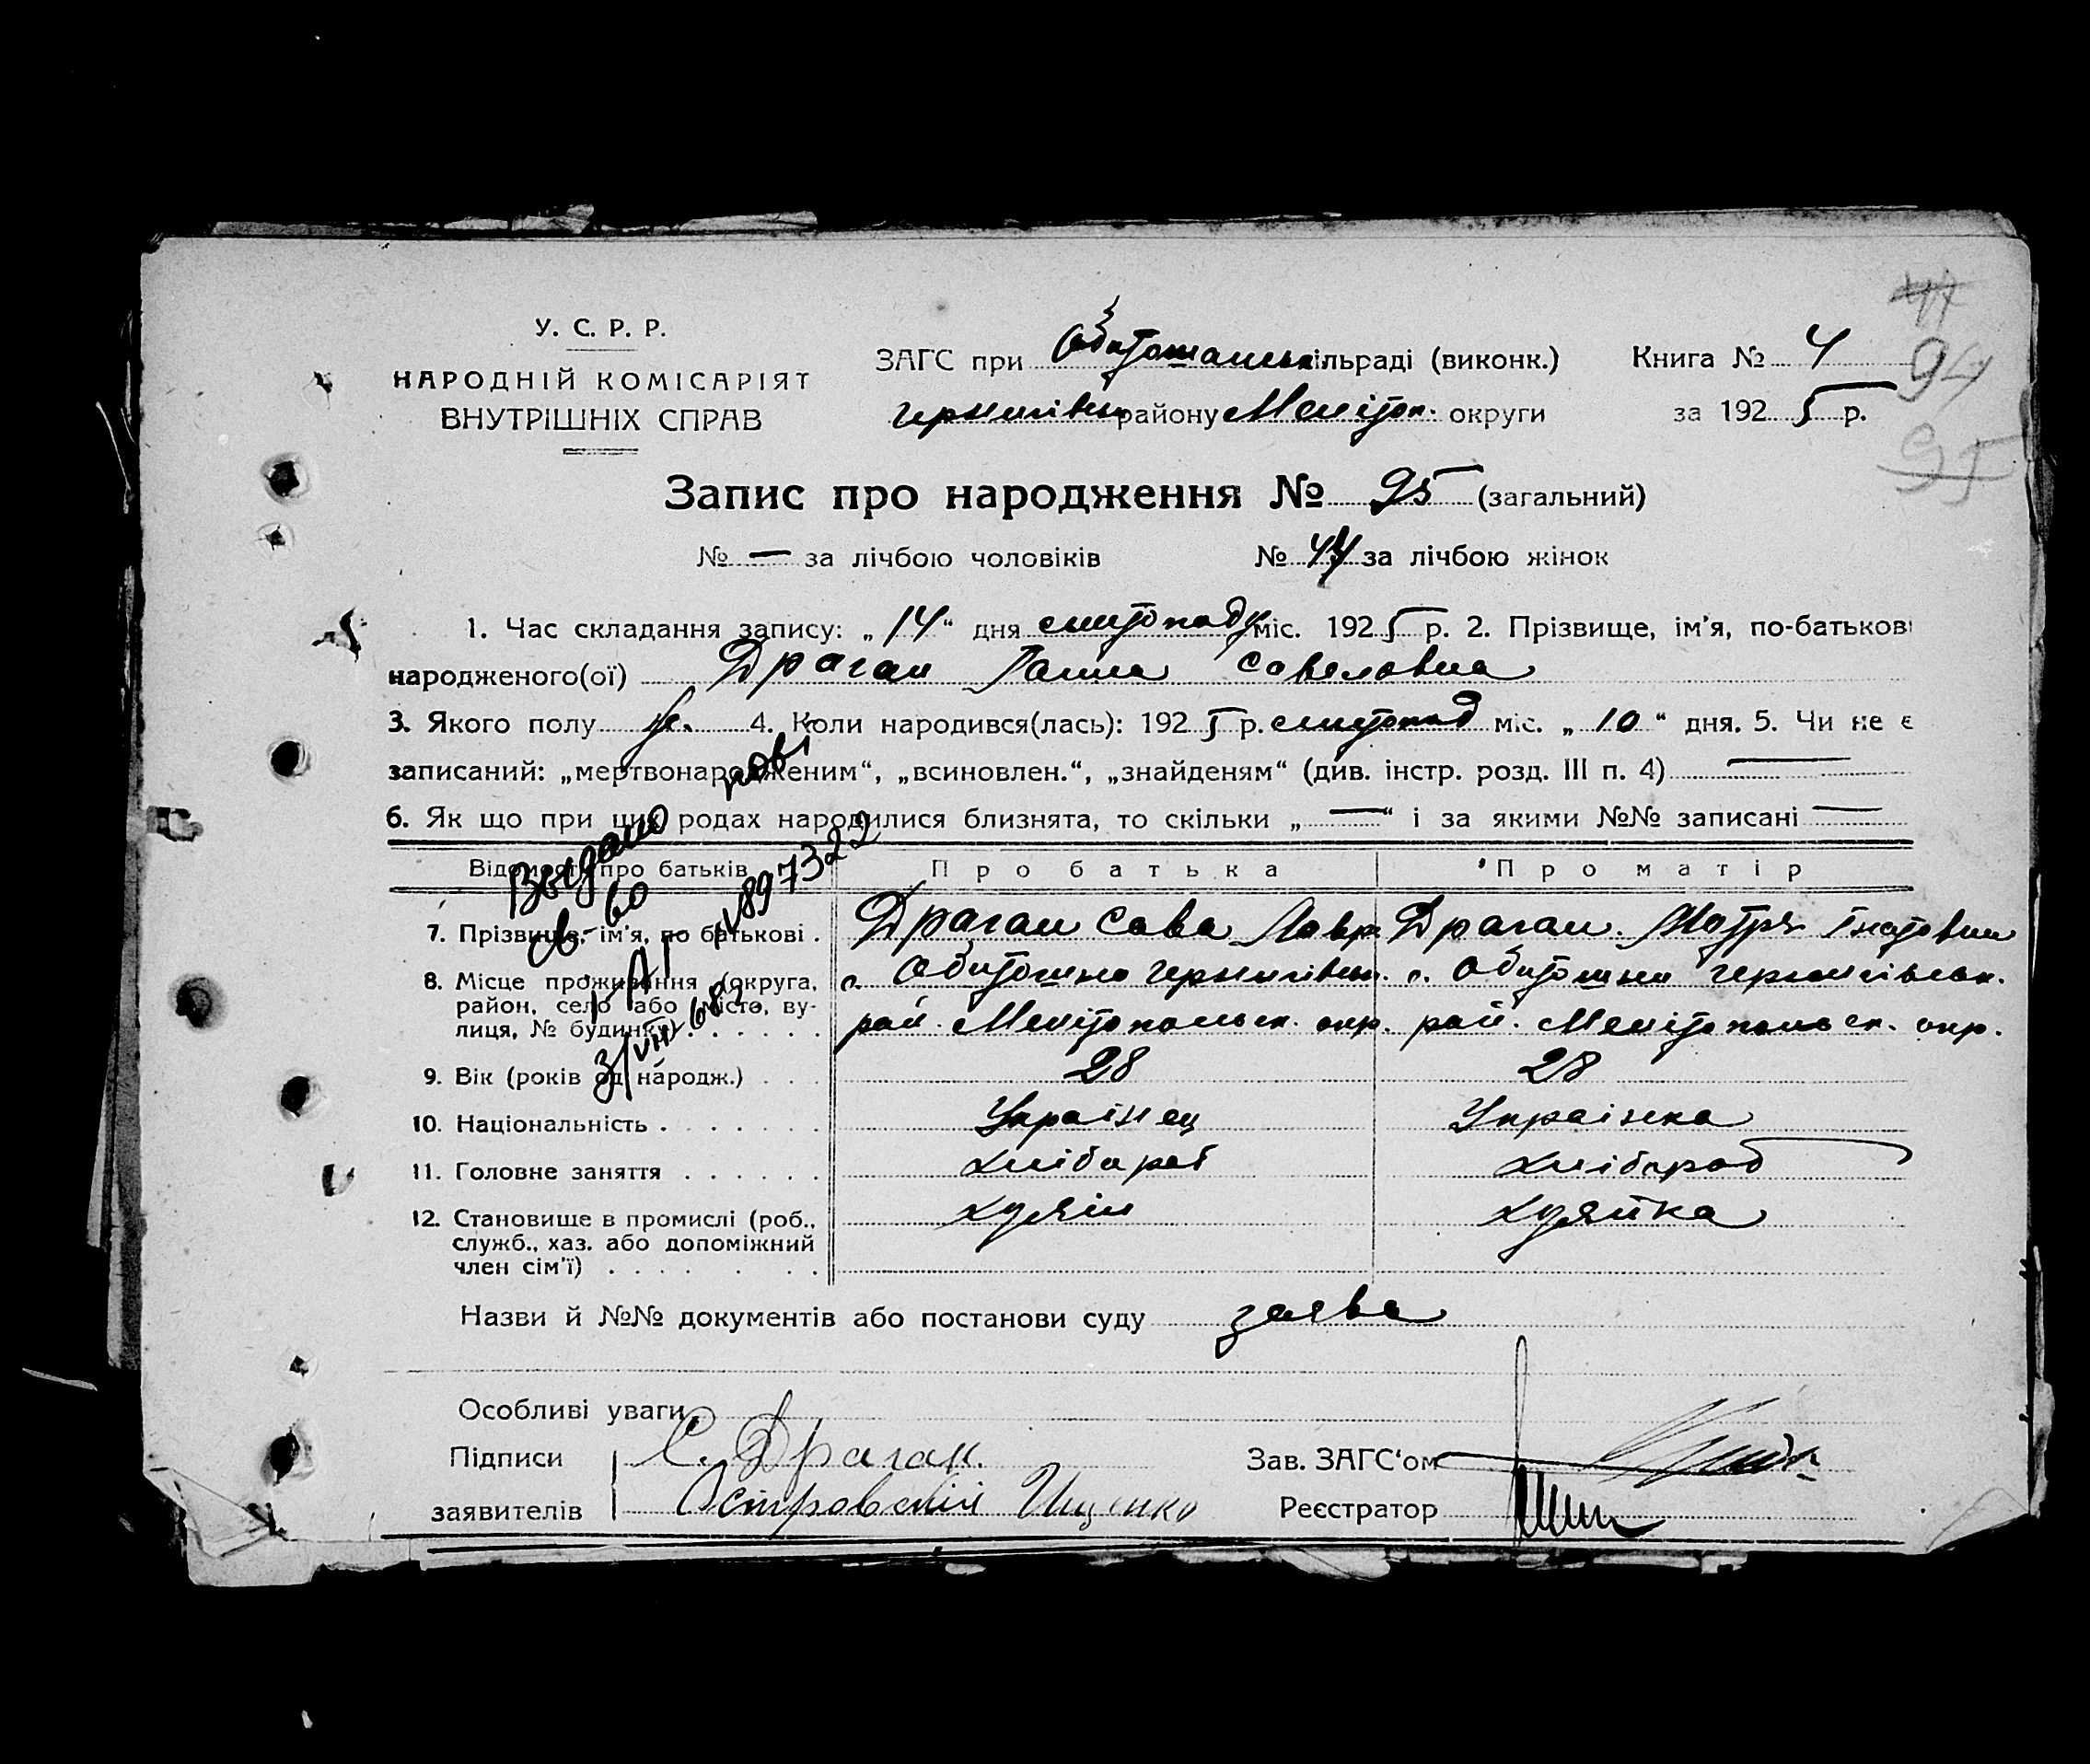 У. С. Р. Р.
НАРОДНІЙ КОМІСАРІЯТ
ВНУТРІШНІХ СПРАВ
ЗАГС при Обиточанськ. сільраді (виконк.) Книга № 4
Чернигівськ району Мелітоп. округи за 1925 р.
94
95
Запис про народження № 95 (загальний)
№ — за лічбою чоловіків № 44 за лічбою жінок
1. Час складання запису: „14“ дня листопаду міс. 1925 р. 2. Прізвище, ім’я, по-батькові
народженого(ої) Драган Ганна Савеловна
3. Якого полу ж. 4. Коли народився(лась): 1925 р. листопад міс. „10“ дня. 5. Чи не є
записаний: „мертвонародженим“, „всиновлен.“, „знайденям“ (див. інстр. розд. III п. 4) —
6. Як що при цих родах народилися близнята, то скільки „—“ і за якими №№ записані —
Відомості про батьків Про батька Про матір
Выдано
св-во
1-АП №897322
3/VII-68
7. Прізвище, ім’я, по батькові . Драган Сава Лавр. Драган Мотря Гнатовна
8. Місце проживання (округа, район, село або місто, вулиця, № будинку) с. Обиточна Чернигівськ. рай. Мелітопольск. окр. с. Обиточна Чернигівськ. рай. Мелітопольск. окр.
9. Вік (років од народж.) . . . 28 28
10. Національність . . . . . . . Українец Українка
11. Головне заняття . . . . . . хлібороб хлібороб
12. Становище в промислі (роб., служб., хаз. або допоміжний член сім’ї) . . . . . . . хузяін хузяйка
Назви й №№ документів або постанови суду заява
Особливі уваги
Підписи С. Драган. Зав. ЗАГС‘ом
заявителів Островский Ищенко Реєстратор